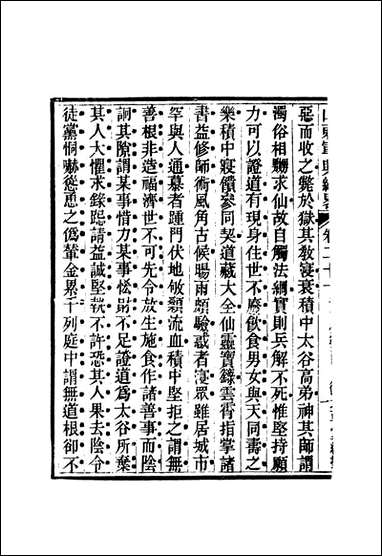 惡而收之斃於獄其教寖衰積中太谷高弟神其師謂
濁俗相嬲求仙故自觸法網實則兵解不死惟堅持願
力可以證道有現身住世不廢飲食男女與天同壽之
樂積中寢饋參同契道藏大全仙靈寶籙雲宵指掌諸
書益修師術風角占候暘雨頗驗載者寖眾雖居城市
罕與人通慕者踵門伏地敏顙流血積中堅拒之謂無
善根非造福濟世不可先令放生施食作諸善事而陰
詗其隙謂某事惜力某事慳財不足證道為太谷所棄
其人大懼求錄跽請益誠堅執不許恐其人果去陰令
徒黨恫嚇慫恿之僞輦金累千列庭中謂無道根卻不